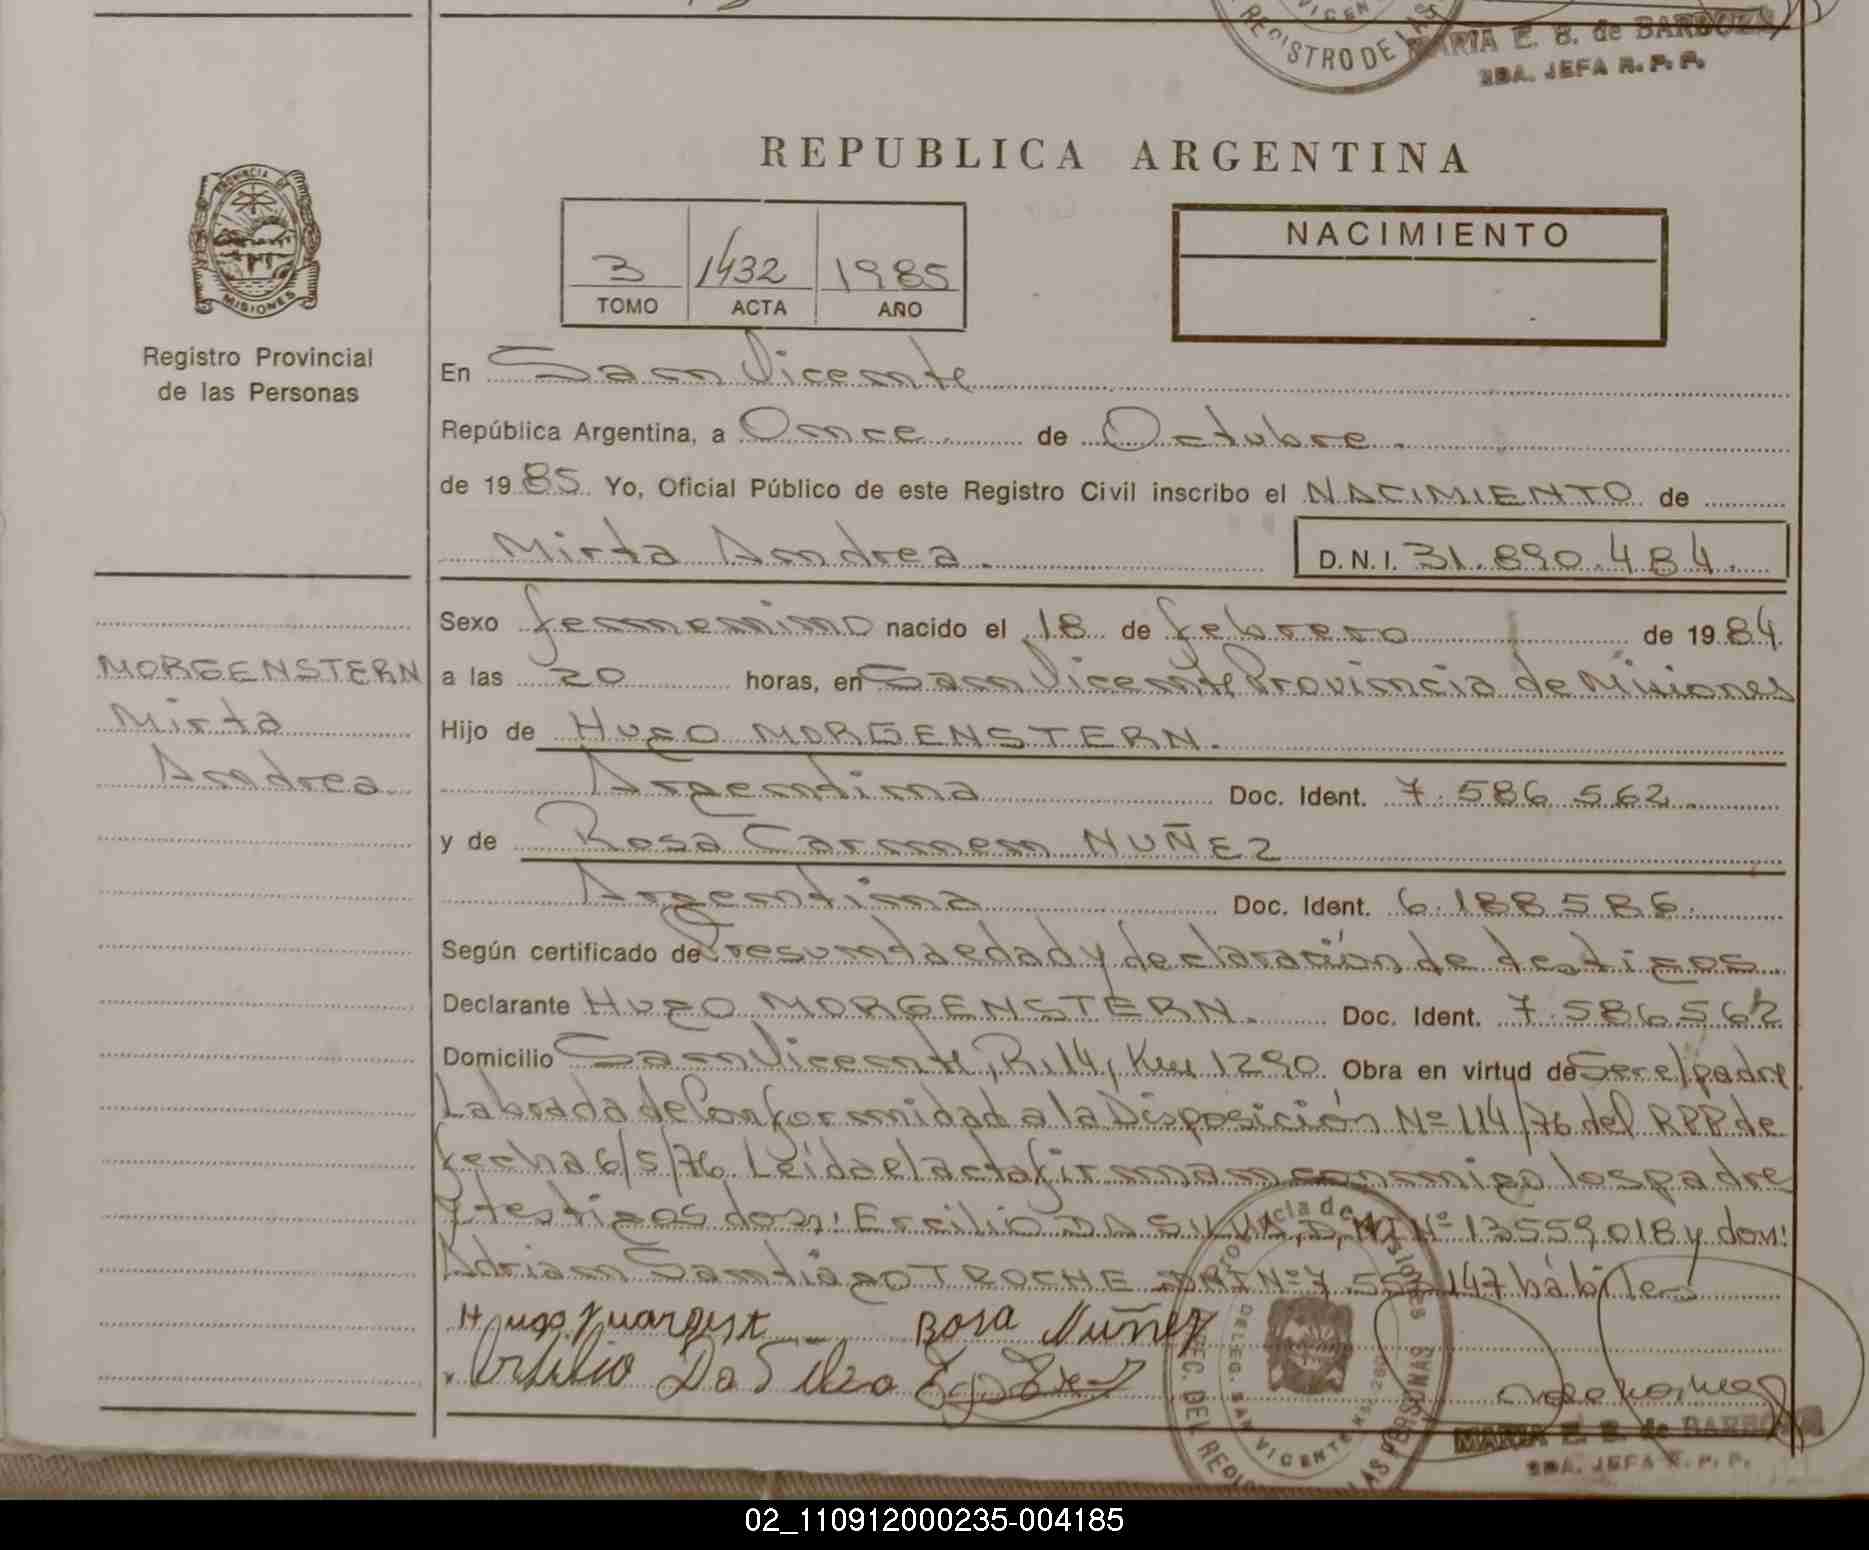 REGISTRO DE LAS
MARIA E. B. de BARBOZA
SBA. JEFA R. P. P.
REPUBLICA ARGENTINA
PROVINCIA DE
MISIONES
NACIMIENTO
3 1432 1985
TOMO ACTA AÑO
Registro Provincial
de las Personas
En San Vicente
República Argentina, a Once de Octubre.
de 1985. Yo, Oficial Público de este Registro Civil inscribo el NACIMIENTO de
Mirta Andrea. D.N.I. 31.890.484.
Sexo femenino nacido el 18 de febrero de 1984.
MORGENSTERN
Mirta
Andrea
a las 20 horas, en San Vicente Provincia de Misiones
Hijo de HUGO MORGENSTERN.
Argentina Doc. Ident. 7.586.562.
y de Rosa Carmen NUÑEZ
Argentina Doc. Ident. 6.188.586.
Según certificado de Presunta edad y declaración de testigos.
Declarante HUGO MORGENSTERN. Doc. Ident. 7.586562
Domicilio San Vicente, R.14, Km 1290. Obra en virtud de Ser el padre.
Labrada de Conformidad a la Disposición Nº 114/76 del RPP de
fecha 6/5/76. Leída el acta firman conmigo los padres
y testigos don: Ercilio DA SILVA, D.N.I Nº 13559018 y don:
Adrian Santiago TROCHE DNI Nº 7.557.147 hábiles
Rosa Nuñez
Da Silva
MARIA E. B. de BARBOZA
SBA. JEFA R. P. P.
02_110912000235-004185